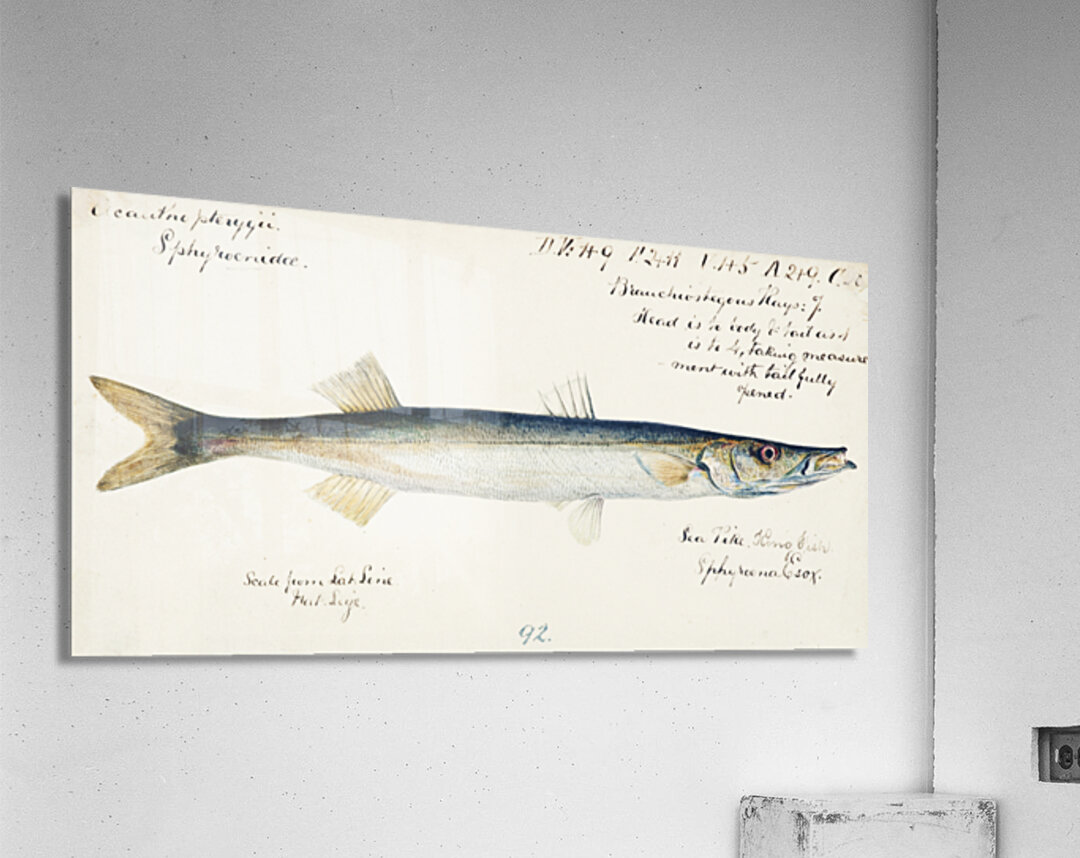 Acanthopterygii.
Sphyraenidae.
Branchiostegous Rays: 7.
Head is to body & tail as 1
is to 4, taking measure
-ment with tail fully
opened.
Sea Pike. King Fish.
Sphyraena Esox.
Scale from Lat. Line
Nat. Size.
92.